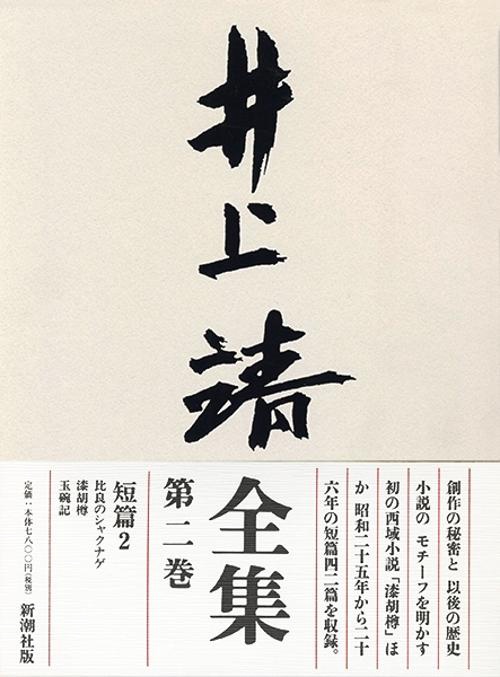 井上靖
全集
第二巻
創作の秘密と 以後の歴史
小説の モチーフを明かす
初の西域小説「漆胡樽」ほ
か 昭和二十五年から二十
六年の短篇四二篇を収録。
短篇2
比良のシャクナゲ
漆胡樽
玉碗記
定価:本体七八〇〇円(税別)
新潮社版